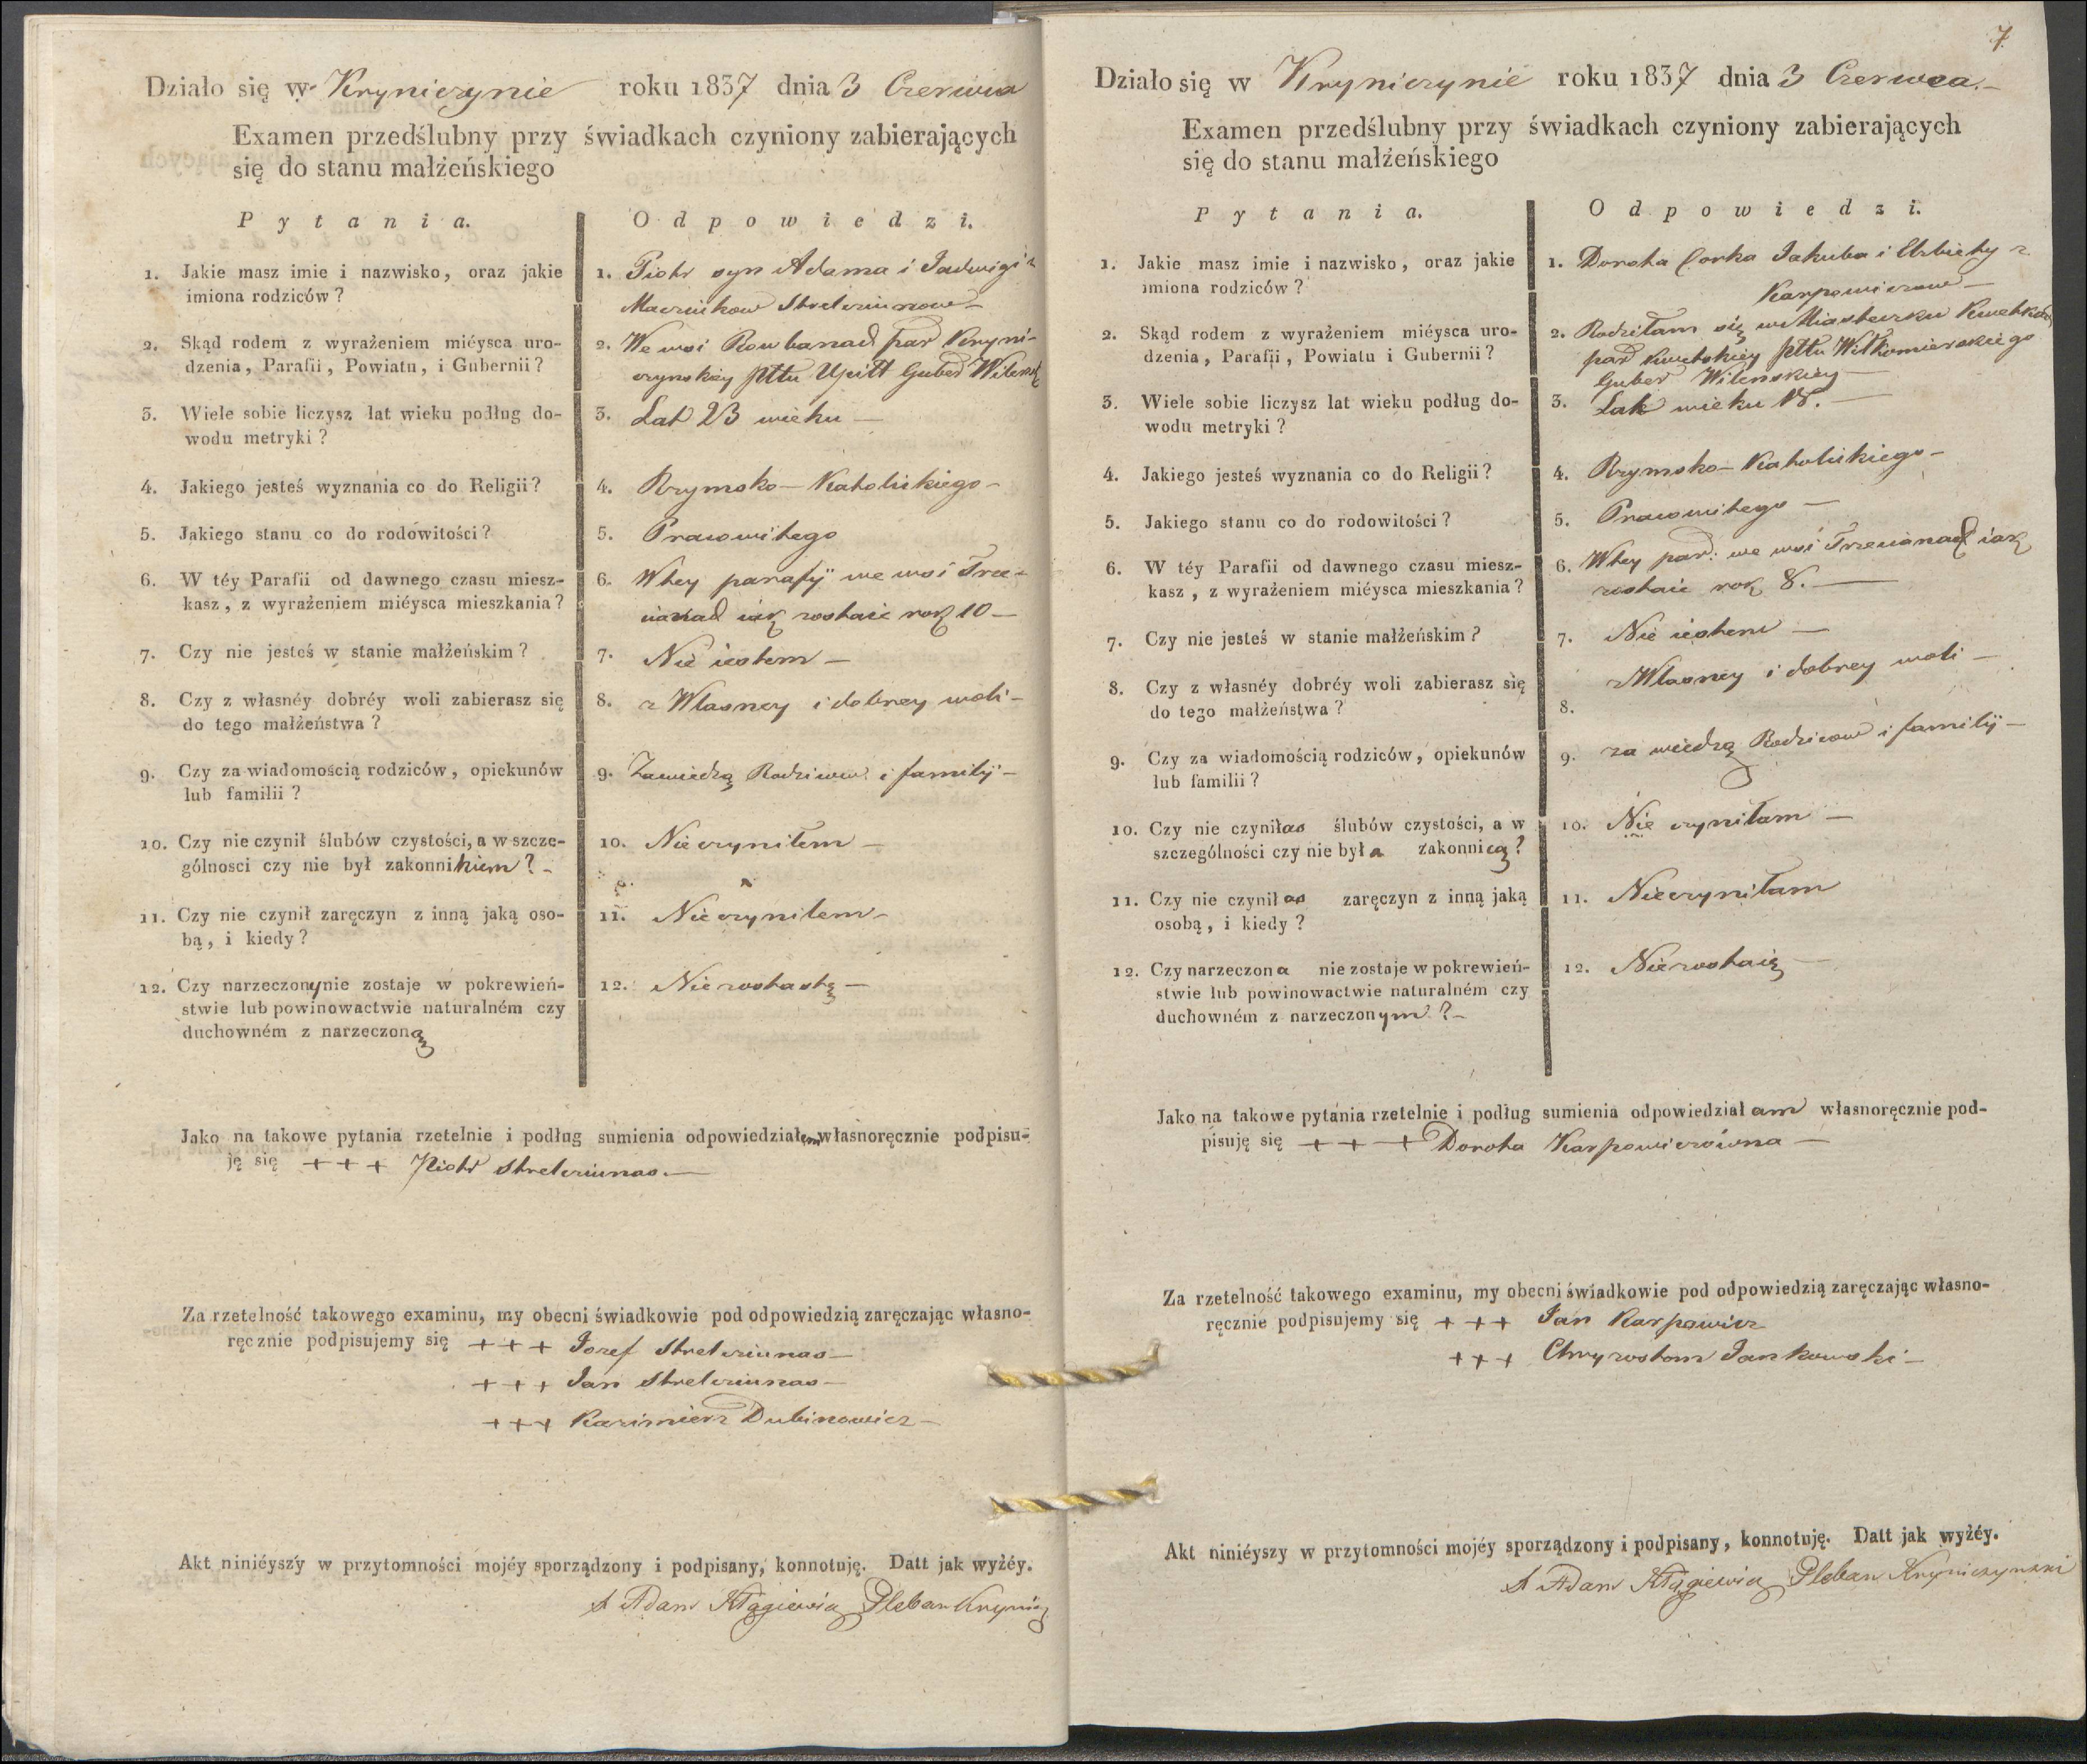 Działo się w Kryniczynie roku 1837 dnia 3 Czerwca
Examen przedślubny przy świadkach czyniony zabierających
się do stanu małżeńskiego
Pytania.
Odpowiedzi.
1. Jakie masz imie i nazwisko, oraz jakie
imiona rodziców?
1. Piotr syn Adama i Jadwigi z
Strelciunow
2. Skąd rodem z wyrażeniem miéysca uro-
dzenia, Parafii, Powiatu, i Gubernii?
2. We wsi Rowbanad par Kryni-
czynskiey pttu Upitt Guber Wilensk
3. Wiele sobie liczysz lat wieku podług do-
wodu metryki?
3. Lat 23 wieku —
4. Jakiego jesteś wyznania co do Religii?
4. Rzymsko — Katolickiego —
5. Jakiego stanu co do rodowitości?
5. Prawowitego
6. W téy Parafii od dawnego czasu miesz-
kasz, z wyrażeniem miéysca mieszkania?
6. Wtey parafÿ we wsi Trze-
cianad iak zostaie rok 10 —
7. Czy nie jesteś w stanie małżeńskim?
7. Nie iestem —
8. Czy z własnéy dobréy woli zabierasz się
do tego małżeństwa?
8. z Własney i dobrey woli —
9. Czy za wiadomością rodziców, opiekunów
lub familii?
9. Zawiedzą Rodzicow i familÿ —
10. Czy nie czynił ślubów czystości, a w szcze-
gólnosci czy nie był zakonnikiem? —
10. Nieczyniłem —
11. Czy nie czynił zaręczyn z inną jaką oso-
bą, i kiedy?
11. Nieczyniłem —
12. Czy narzeczony nie zostaje w pokrewień-
stwie lub powinowactwie naturalném czy
duchowném z narzeczoną
12. —
Jako na takowe pytania rzetelnie i podług sumienia odpowiedziałem własnoręcznie podpisu-
ję się + + + Piotr Strelciunas. —
Za rzetelność takowego examinu, my obecni świadkowie pod odpowiedzią zaręczając własno-
ręcznie podpisujemy się + + + Jozef Strelciunas —
+ + + Jan Strelciunas —
+ + + Kazimierz Dubinowicz —
Akt niniéyszy w przytomności mojéy sporządzony i podpisany, konnotuję. Datt jak wyżéy.
X Adam Pleban
7
Działo się w Krynicznie roku 1837 dnia 3 Czerwca. —
Examen przedślubny przy świadkach czyniony zabierających
się do stanu małżeńskiego
Pytania.
Odpowiedzi.
1. Jakie masz imie i nazwisko, oraz jakie
imiona rodziców?
1. Dorota Corka Jakuba i Elzbiety z
Karpowiczow —
2. Skąd rodem z wyrażeniem miéysca uro-
dzenia, Parafii, Powiatu i Gubernii?
2. Rodziłam się w Miasteczku
par pttu Wiłkomierskiego
Guber Wilenskiey —
3. Wiele sobie liczysz lat wieku podług do-
wodu metryki?
3. Lat wieku 18. —
4. Jakiego jesteś wyznania co do Religii?
4. Rzymsko — Katolickiego —
5. Jakiego stanu co do rodowitości?
5. Prawowitego —
6. W téy Parafii od dawnego czasu miesz-
kasz, z wyrażeniem miéysca mieszkania?
6. Wtey par: we wsi Trzecianad iak
zostaie rok 8. —
7. Czy nie jesteś w stanie małżeńskim?
7. Nie iestem —
8. Czy z własnéy dobréy woli zabierasz się
do tego małżeństwa?
8. z Własney i dobrey woli —
9. Czy za wiadomością rodziców, opiekunów
lub familii?
9. za wiedzą Rodzicow i familÿ —
10. Czy nie czyniłas ślubów czystości, a w
szczególności czy nie była zakonnicą?
10. Nie czyniłam —
11. Czy nie czyniłas zaręczyn z inną jaką
osobą, i kiedy?
11. Nieczyniłam
12. Czy narzeczona nie zostaje w pokrewień-
stwie lub powinowactwie naturalném czy
duchowném z narzeczonym? —
12. Niezostaię —
Jako na takowe pytania rzetelnie i podług sumienia odpowiedziałam własnoręcznie pod-
pisuję się + + + Dorota Karpowiczówna —
Za rzetelność takowego examinu, my obecni świadkowie pod odpowiedzią zaręczając własno-
ręcznie podpisujemy się + + + Jan Karpowicz
+ + + Chryzostom Jankowski —
Akt niniéyszy w przytomności mojéy sporządzony i podpisany, konnotuję. Datt jak wyżéy.
X Adam Pleban Krynicznynski